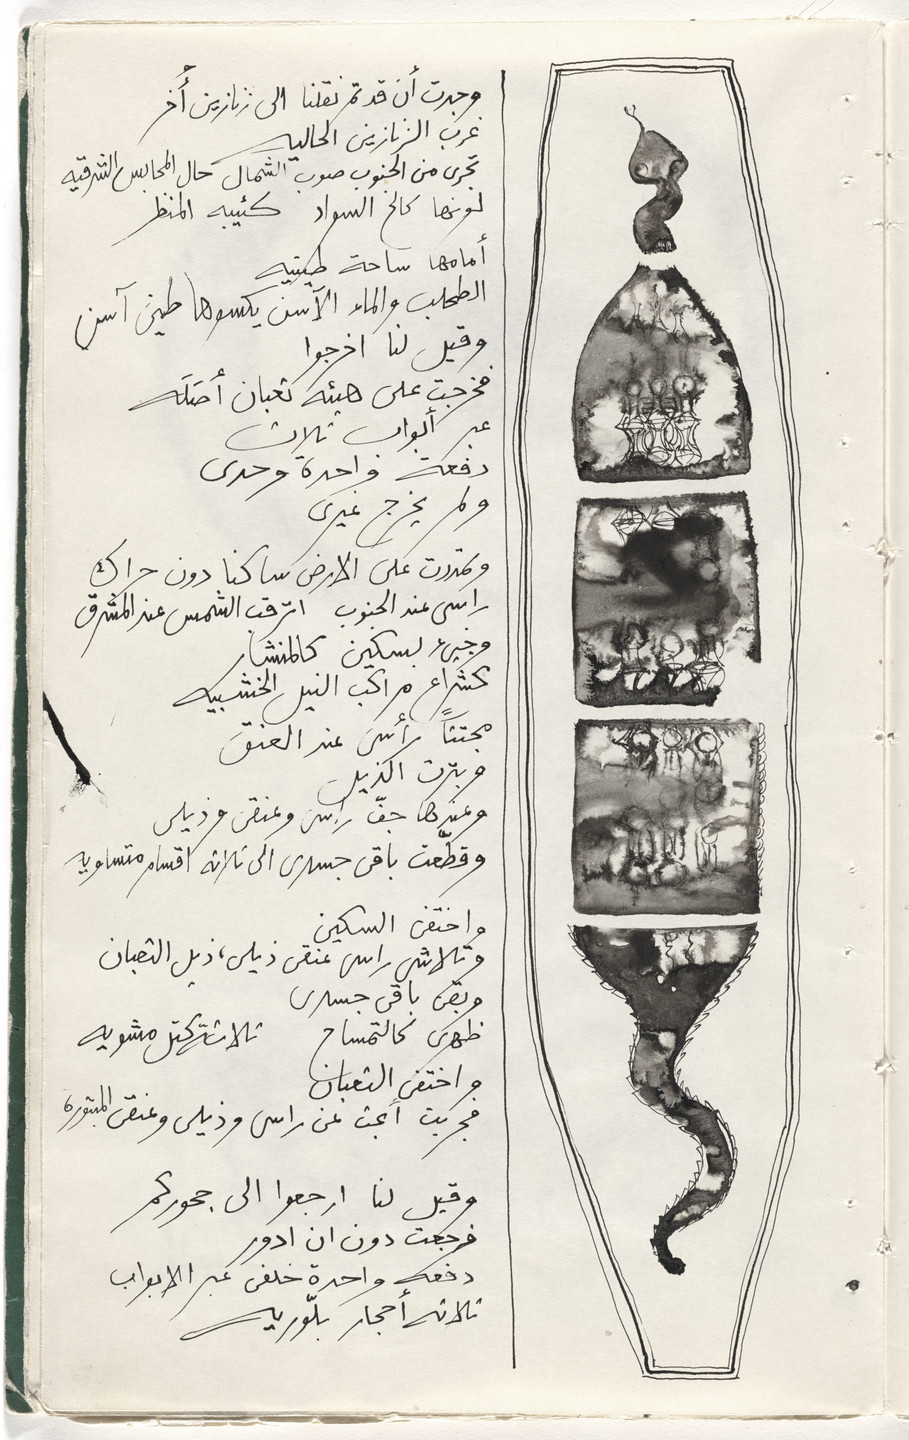 وجدت أن قد تم نقلنا الى زنازين أُخر
غرب الزنازين الحاليه
تجرى من الجنوب صوب الشمال حال المحابس الشرقيه
لونها كالح السواد كئيبه المنظر
أمامها ساحة طينيه
الطحلب والماء الآسن يكسوها طين آسن
وقيل لنا اخرجوا
فخرجت على هيئه ثعبان أصَلَه
عبر أبواب ثلاث
دفعة واحدة وحدى
ولم يخرج غيرى
وتمددت على الارض ساكنا دون حراك
راسى عند الجنوب اترقب الشمس عند المشرق
وجىء بسكين كالمنشار
كشراع مراكب النيل الخشبيه
مجتثاً رأسى عند العنق
وبترت الذيل
وعندها جفّ راسى وعنقى وذيلى
وقطّعت باقى جسدى الى ثلاثه اقسام متساويه
واختفى السكين
وتلاشى راسى عنقى ذيلى، ذيل الثعبان
وبقى باقى جسدى
ظهرى كالتمساح ثلاثة كتل مشويه
واختفى الثعبان
فجريت أبحث عن راسى وذيلى وعنقى المبتوره
وقيل لنا ارجعوا الى جحوركم
فرجعت دون ان ادور
دفعه واحدة خلفى عبر الابواب
ثلاثه أحجار بلّوريه